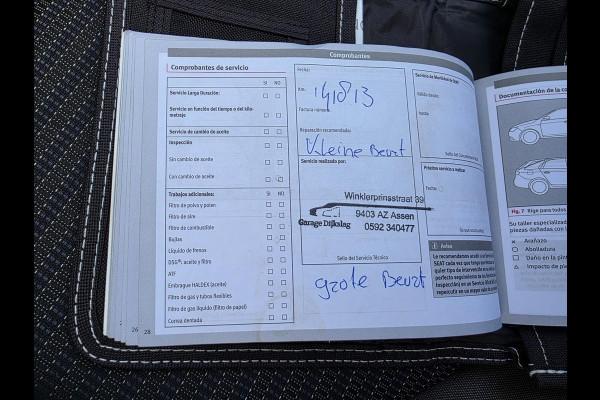 Comprobantes
Comprobantes de servicio
SI NO
Servicio Larga Duración:
Servicio en función del tiempo o del kilo-
metraje
Servicio de cambio de aceite
Inspección
Sin cambio de aceite
Con cambio de aceite
Trabajos adicionales:
SI NO
Filtro de polvo y polen
Filtro de aire
Filtro de combustible
Bujías
Líquido de frenos
DSG®: aceite y filtro
ATF
Embrague HALDEX (aceite)
Filtro de gas y tubos flexibles
Filtro de gas líquido (filtro de papel)
Correa dentada
26
28
Fecha:
Km.
141813
Factura número:
Reparación recomendada:
Kleine Beurt
Servicio realizado por:
Winklerprinsstraat 39
9403 AZ Assen
Garage Dijksleg
0592 340477
Sello del Servicio Técnico
grote Beurt
Servicio de Movilidad de SEAT
Válido desde:
hasta:
Próximo servicio a realizar
Fecha:
Aviso
Le recomendamos
SEAT cada vez que
quier tipo de intervención
Inspección) en un Servicio
repercutir en un mayor valor
Documentación de la
Fig. 7 Rige para todos
Su taller especializad
piezas dañadas con l
Arañazo
Abolladura
Daño en la pint
Impacto de pie